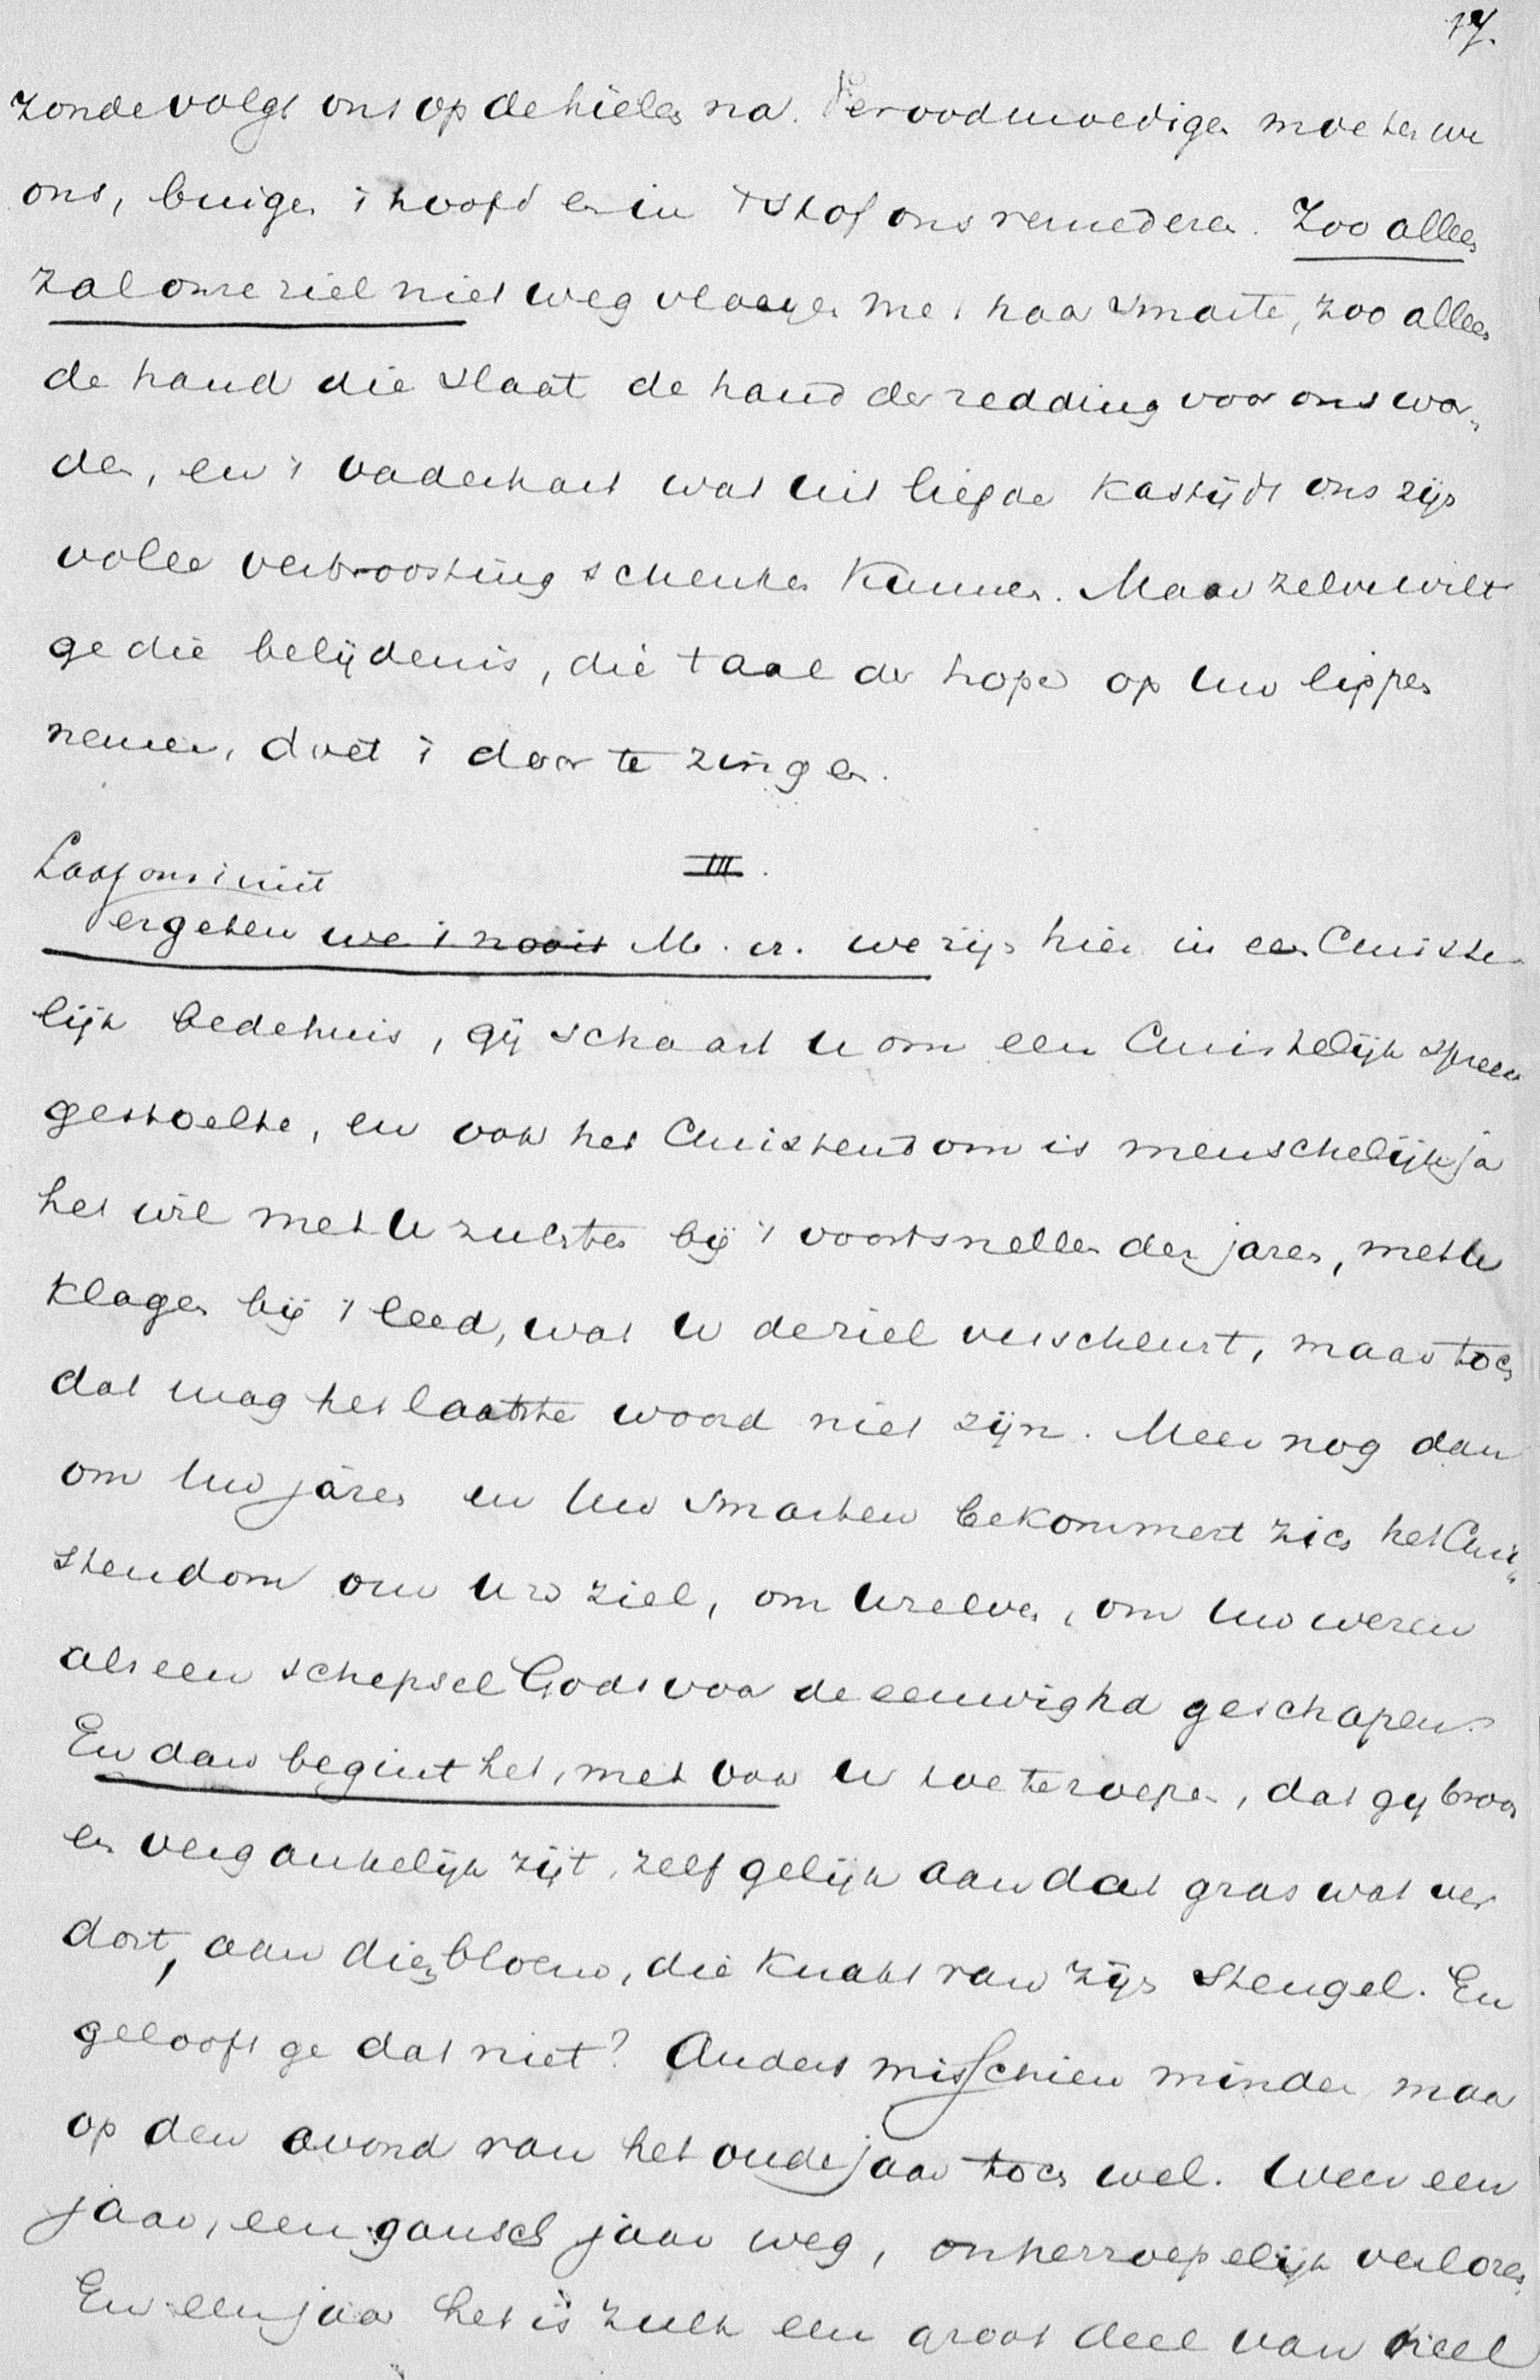 17.
zonde volgt ons op de hielen na. Verootmoedigen moeten we
ons, buigen 't hoofd en in 't stof ons vernederen. Zoo alleen
zal onze ziel niet weg vloeyen met haar smarte, zoo alleen
de hand die slaat de hand der redding voor ons wor-
den, en 't vaderhart wat uit liefde kastijdt ons zijn
volle vertroosting schenken kunnen. Maar zelve wilt
ge die belijdenis, die taal der hope op Uw lippen
nemen, doet 't door te zingen.
III.
Laat ons 't niet
Vergeten we 't nooit M. vr. we zijn hier in een Christe-
lijk bedehuis, gij schaart U om een Christelijk spreek
gestoelte, en ook het Christendom is menschelijk ja
het wil met U zuchten bij 't voortsnellen der jaren, met U
klagen bij 't leed, wat U de ziel verscheurt, maar toch
dat mag het laatste woord niet zijn. Meer nog dan
om Uw jaren en Uw smarten bekommert zich het Chri-
stendom om Uw ziel, om Uzelven, om Uw wezen
als een schepsel Gods voor de eeuwigheid geschapen.
En dan begint het, met ook U toe te roepen, dat gij broos
en vergankelijk zijt, zelf gelijk aan dat gras wat ver
dort, aan die bloem, die knakt van zijn stengel. En
gelooft ge dat niet? Anders misschien minder maar
op den avond van het oude jaar toch wel. Weer een
jaar, een gansch jaar weg, onherroepelijk verloren
En een jaar het is zulk een groot deel van heel